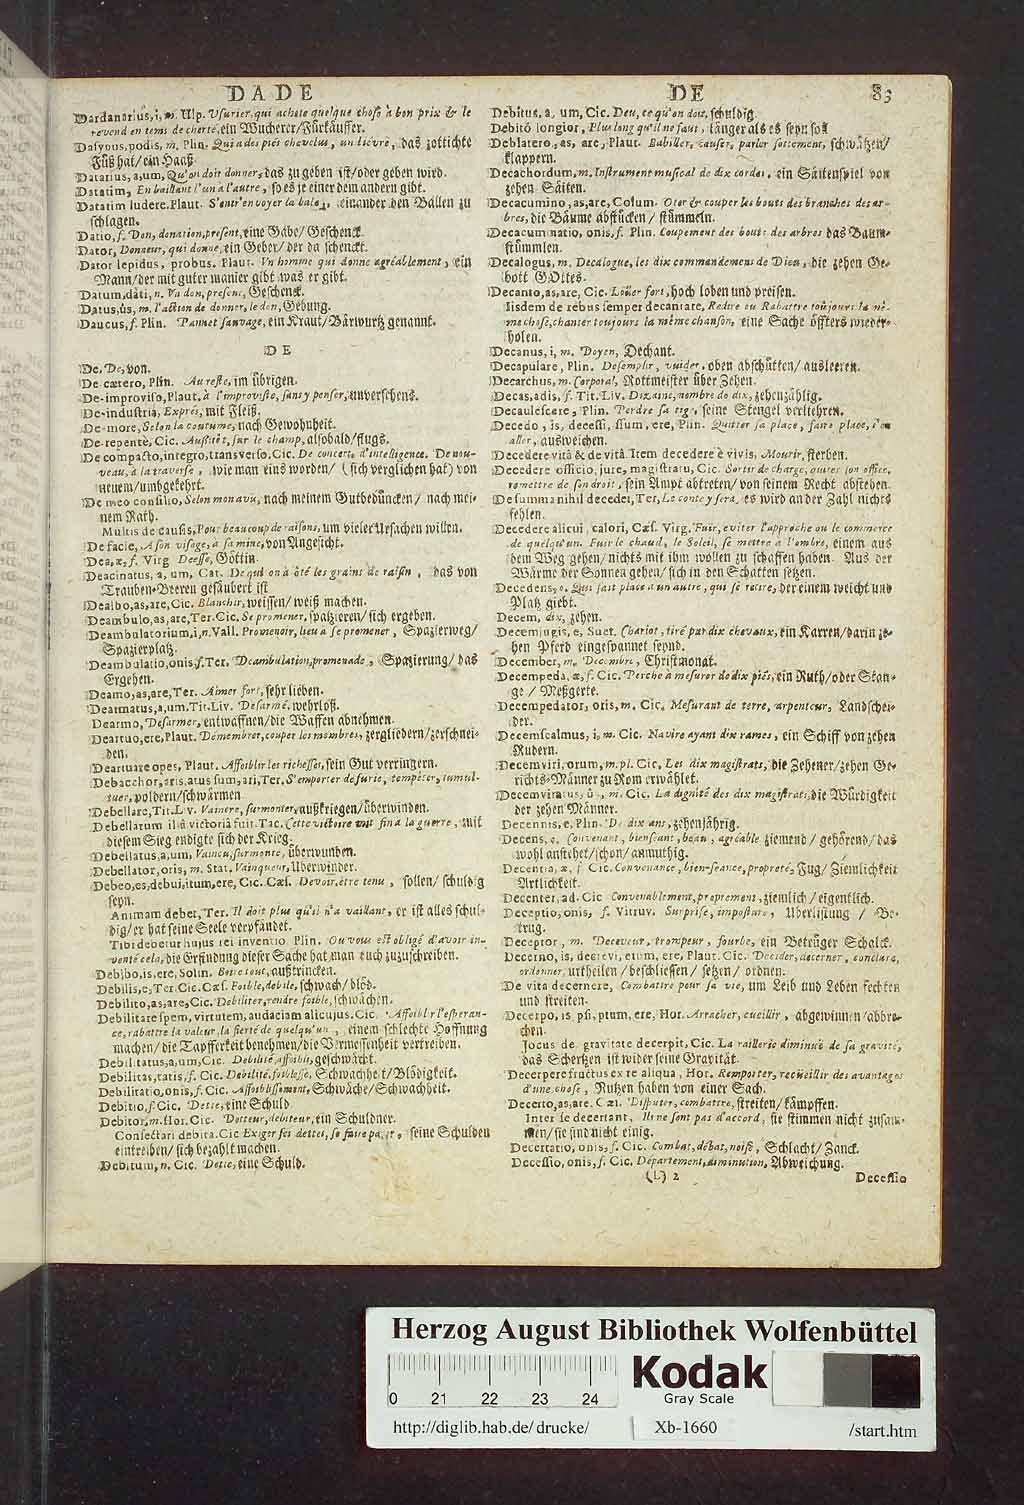 DADE
Dardanarius, i, m. Ulp. Usurier, qui achete quelque chose à bon prix & le
revend en tems de cherté, ein Wucherer/Fürkäuffer.
Dasypus, podis, m. Plin. Qui a des piés chevelus, un lievre, das zottichte
Füß hat/ein Haaß.
Datarius, a, um, Qu'on doit donner, das zu geben ist/oder geben wird.
Datatim, En baillant l'un à l'autre, so es je einer dem andern gibt.
Datatim ludere. Plaut. S'entr'envoyer la bale, einander den Ballen zu
schlagen.
Datio, f. Don, donation, present, eine Gabe/Geschenck.
Dator, Donneur, qui donne, ein Geber/der da schenckt.
Dator lepidus, probus. Plaut. Un homme qui donne agréablement, ein
Mann/der mit guter manier gibt was er gibt.
Datum, dati, n. Un don, present, Geschenck.
Datus, ûs, m. l'action de donner, le don, Gebung.
Daucus, f. Plin. Pannet sauvage, ein Kraut/Bärwurtz genannt.
DE
De, De, von.
De cætero, Plin. Au reste, im übrigen.
De-improviso, Plaut. à l'improviste, sans y penser, unversehens.
De-industria, Exprés, mit Fleiß.
De-more, Selon la coutume, nach Gewohnheit.
De-repente, Cic. Aussitôt, sur le champ, alsobald/flugs.
De compacto, integro, transverso. Cic. De concert, d'intelligence. De nou-
veau, à la traverse, wie man eins worden/(sich verglichen hat) von
neuem/umbgekehrt.
De meo consilio, Selon mon avis, nach meinem Gutbedüncken/nach mei-
nem Rath.
Multis de causis, Pour beaucoup de raisons, um vieler Ursachen willen.
De facie, A son visage, à sa mine, von Angesicht.
Dea, æ, f. Virg. Deesse, Göttin.
Deacinatus, a, um, Cat. De qui on a ôté les grains de raisin, das von
Trauben-Beeren gesäubert ist
Dealbo, as, are, Cic. Blanchir, weissen/weiß machen.
Deambulo, as, are, Ter. Cic. Se promener, spatzieren/sich ergehen.
Deambulatorium, i, n. Vall. Promenoir, lieu à se promener, Spazierweg/
Spazierplatz.
Deambulatio, onis, f. Ter. Deambulation, promenade, Spazierung/das
Ergehen.
Deamo, as, are, Ter. Aimer fort, sehr lieben.
Dearmatus, a, um. Tit. Liv. Desarmé, wehrloß.
Dearmo, Desarmer, entwaffnen/die Waffen abnehmen.
Deartuo, ere, Plaut. Démembrer, couper les membres, zergliedern/zerschnei-
den.
Deartuare opes, Plaut. Affoiblir les richesses, sein Gut verringern.
Debacchor, aris, atus sum, ari, Ter. S'emporter de furie, tempêter, tumul-
tuer, poldern/schwärmen
Debellare, Tit. Liv. Vaincre, surmonter, außkriegen/überwinden.
Debellatum illâ victoriâ fuit. Tac. Cette victoire mit fin à la guerre, mit
diesem Sieg endigte sich der Krieg.
Debellatus, a, um, Vaincu, surmonté, überwunden.
Debellator, oris, m. Stat. Vainqueur, Uberwinder.
Debeo, es, debui, itum, ere, Cic. Cæs. Devoir, être tenu, sollen/schuldig
seyn.
Animam debet, Ter. Il doit plus qu'il n'a vaillant, er ist alles schul-
dig/er hat seine Seele verpfändet.
Tibi debetur hujus rei inventio. Plin. On vous est obligé d'avoir in-
venté cela, die Erfindung dieser Sache hat man euch zuzuschreiben.
Debibo, is, ere, Solin. Boire tout, außtrincken.
Debilis, e, Ter. Cic. Cæs. Foible, debile, schwach/blöd.
Debilito, as, are, Cic. Debiliter, rendre foible, schwächen.
Debilitare spem, virtutem, audaciam alicujus. Cic. Affoiblir l'esperan-
ce, rabattre la valeur, la fierté de quelqu'un, einem schlechte Hoffnung
machen/die Tapfferkeit benehmen/die Vermessenheit vertreiben.
Debilitatus, a, um, Cic. Debilité, affoibli, geschwächt.
Debilitas, tatis, f. Cic. Debilité, foiblesse, Schwachheit/Blödigkeit.
Debilitatio, onis, f. Cic. Affoiblissement, Schwäche/Schwachheit.
Debitio, f. Cic. Dette, eine Schuld.
Debitor, m. Hor. Cic. Detteur, débiteur, ein Schuldner.
Consectari debita. Cic. Exiger ses dettes, se faire payer, seine Schulden
eintreiben/sich bezahlt machen.
Debitum, n. Cic. Dette, eine Schuld.
DE 83
Debitus, a, um, Cic. Deu, ce qu'on doit, schuldig.
Debitò longior, Plus long qu'il ne faut, länger als es seyn soll
Deblatero, as, are, Plaut. Babiller, causer, parler sottement, schwätzen/
klappern.
Decachordum, m. Instrument musical de dix cordes, ein Säitenspiel von
zehen Säiten.
Decacumino, as, are, Colum. Oter & couper les bouts des branches des ar-
bres, die Bäume abstücken/stümmeln.
Decacuminatio, onis, f. Plin. Coupement des bouts des arbres das Baum-
stümmlen.
Decalogus, m. Decalogue, les dix commandemens de Dieu, die zehen Ge-
bott GOttes.
Decanto, as, are, Cic. Loüer fort, hoch loben und preisen.
Iisdem de rebus semper decantare, Redire ou Rabattre toûjours la mê-
me chose, chanter toujours la même chanson, eine Sache öffters wieder-
holen.
Decanus, i, m. Doyen, Dechant.
Decapulare, Plin. Desemplir, vuider, oben abschütten/ausleeren.
Decarchus, m. Corporal, Rottmeister über Zehen.
Decas, adis, f. Tit. Liv. Dizaine, nombre de dix, zehenzählig.
Decaulescere, Plin. Perdre sa tige, seine Stengel verliehren.
Decedo, is, decessi, ssum, ere, Plin. Quitter sa place, faire place, s'en
aller, ausweichen.
Decedere vitâ & de vitâ. Item decedere è vivis, Mourir, sterben.
Decedere officio, jure, magistratu, Cic. Sortir de charge, quitter son office,
remettre de son droit, sein Ampt abtreten/von seinem Recht abstehen.
De summa nihil decedet, Ter. Le conte y sera, es wird an der Zahl nichts
fehlen.
Decedere alicui, calori, Cæs. Virg. Fuir, eviter l'approche ou le commerce
de quelqu'un. Fuir le chaud, le Soleil, se mettre à l'ombre, einem aus
dem Weg gehen/nichts mit ihm wollen zu schaffen haben. Aus der
Wärme der Sonnen gehen/sich in den Schatten setzen.
Decedens, o. Qui fait place à un autre, qui se retire, der einem weicht und
Platz giebt.
Decem, dix, zehen.
Decemjugis, e, Suet. Chariot, tiré par dix chevaux, ein Karren/darin ze-
hen Pferd eingespannet seynd.
December, m. Decembre, Christmonat.
Decempeda, æ, f. Cic. Perche à mesurer de dix piés, ein Ruth/oder Stan-
ge/Meßgerte.
Decempedator, oris, m. Cic. Mesurant de terre, arpenteur, Landschei-
der.
Decemscalmus, i, m. Cic. Navire ayant dix rames, ein Schiff von zehen
Rudern.
Decemviri, orum, m. pl. Cic. Les dix magistrats, die Zehener/zehen Ge-
richts-Männer zu Rom erwählet.
Decemviratus, û, m. Cic. La dignité des dix magistrats, die Würdigkeit
der zehen Männer.
Decennis, e, Plin. De dix ans, zehenjährig.
Decens, o, Convenant, bienseant, beau, agréable ziemend/gehörend/das
wohl anstehet/schön/anmuthig.
Decentia, æ, f. Cic. Convenance, bien-seance, propreté, Fug/Ziemlichkeit
Artlichkeit.
Decenter, ad. Cic Convenablement, proprement, ziemlich/eigentlich.
Deceptio, onis, f. Vitruv. Surprise, imposture, Uberlistung/Be-
trug.
Deceptor, m. Deceveur, trompeur, fourbe, ein Betrüger Schalck.
Decerno, is, decrevi, etum, ere, Plaut. Cic. Decider, decerner, conclure,
ordonner, urtheilen/beschliessen/setzen/ordnen.
De vita decernere, Combattre pour sa vie, um Leib und Leben fechten
und streiten.
Decerpo, is, psi, ptum, ere, Hor. Arracher, cueillir, abgewinnen/abbre-
chen.
Jocus de gravitate decerpit, Cic. La raillerie diminuë de sa gravité,
das Schertzen ist wider seine Gravität.
Decerpere fructus ex re aliqua, Hor. Remporter, recüeillir des avantages
d'une chose, Nutzen haben von einer Sach.
Decerto, as, are, Cæs. Disputer, combattre, streiten/kämpffen.
Inter se decertant, Ils ne sont pas d'accord, sie stimmen nicht zusam-
men/sie sind nicht einig.
Decertatio, onis, f. Cic. Combat, débat, noise, Schlacht/Zanck.
Decessio, onis, f. Cic. Département, diminution, Abweichung.
(L) 2 Decessio
Herzog August Bibliothek Wolfenbüttel
Kodak
Gray Scale
0 21 22 23 24
http://diglib.hab.de/drucke/ Xb-1660 /start.htm